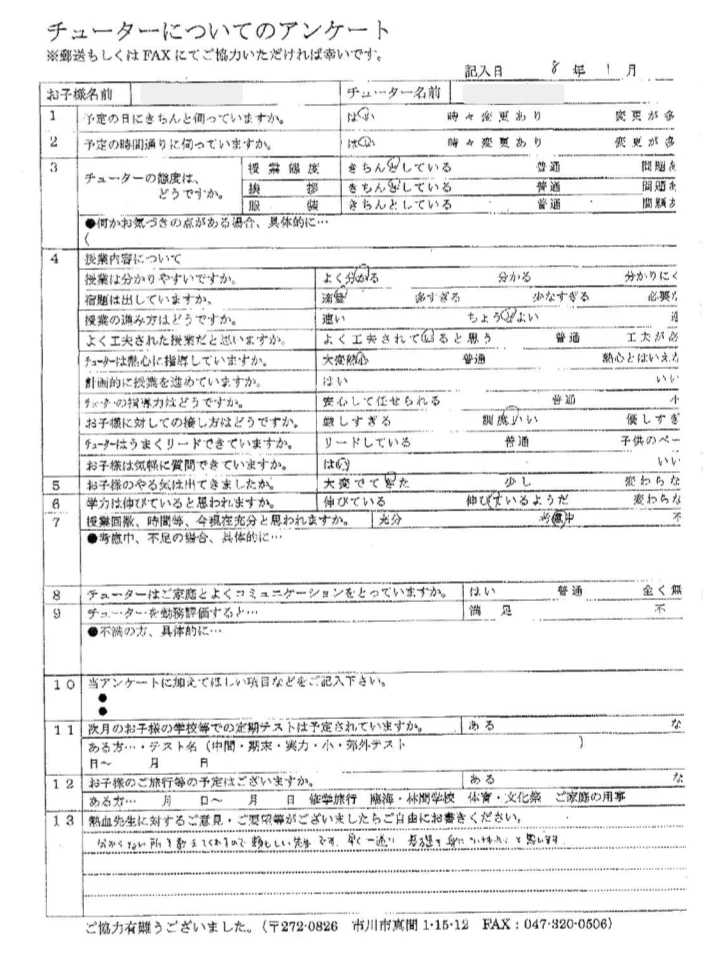 チューターについてのアンケート
※郵送もしくはFAXにてご協力いただければ幸いです。
記入日 8年 1月
お子様名前 チューター名前
1 予定の日にきちんと伺っていますか。 はい 時々変更あり 変更が多
2 予定の時間通りに伺っていますか。 はい 時々変更あり 変更が多
3 チューターの態度は、どうですか。 授業態度 きちんとしている 普通 問題あ
挨拶 きちんとしている 普通 問題あ
服装 きちんとしている 普通 問題あ
●何かお気づきの点がある場合、具体的に…
(
4 授業内容について
授業は分かりやすいですか。 よく分かる 分かる 分かりにく
宿題は出していますか、 適量 多すぎる 少なすぎる 必要な
授業の進み方はどうですか。 速い ちょうどよい 遅
よく工夫された授業だと思いますか。 よく工夫されていると思う 普通 工夫が必
チューターは熱心に指導していますか。 大変熱心 普通 熱心とはいえな
計画的に授業を進めていますか。 はい いい
チューターの指導力はどうですか。 安心して任せられる 普通 不
お子様に対しての接し方はどうですか。 厳しすぎる 調度いい 優しすぎ
チューターはうまくリードできていますか。 リードしている 普通 子供のペー
お子様は気軽に質問できていますか。 はい いい
5 お子様のやる気は出てきましたか。 大変でてきた 少し 変わらな
6 学力は伸びていると思われますか。 伸びている 伸びているようだ 変わらな
7 授業回数、時間等、今現在充分と思われますか。 充分 考慮中 不
●考慮中、不足の場合、具体的に…
8 チューターはご家庭とよくコミュニケーションをとっていますか。 はい 普通 全く無
9 チューターを勤務評価すると… 満足 不
●不満の方、具体的に…
10 当アンケートに加えてほしい項目などをご記入下さい。
●
●
11 次月のお子様の学校等での定期テストは予定されていますか。 ある な
ある方…・テスト名（中間・期末・実力・小・郊外テスト ）
日～ 月 日
12 お子様のご旅行等の予定はございますか。 ある な
ある方… 月 日～ 月 日 修学旅行 臨海・林間学校 体育・文化祭 ご家庭の用事
13 熱血先生に対するご意見・ご要望等がございましたらご自由にお書きください。
分からない所を教えてくれるので頼もしい先生です。早く一通り 基礎を身に と思います
ご協力有難うございました。（〒272-0826 市川市真間1-15-12 FAX：047-320-0506）